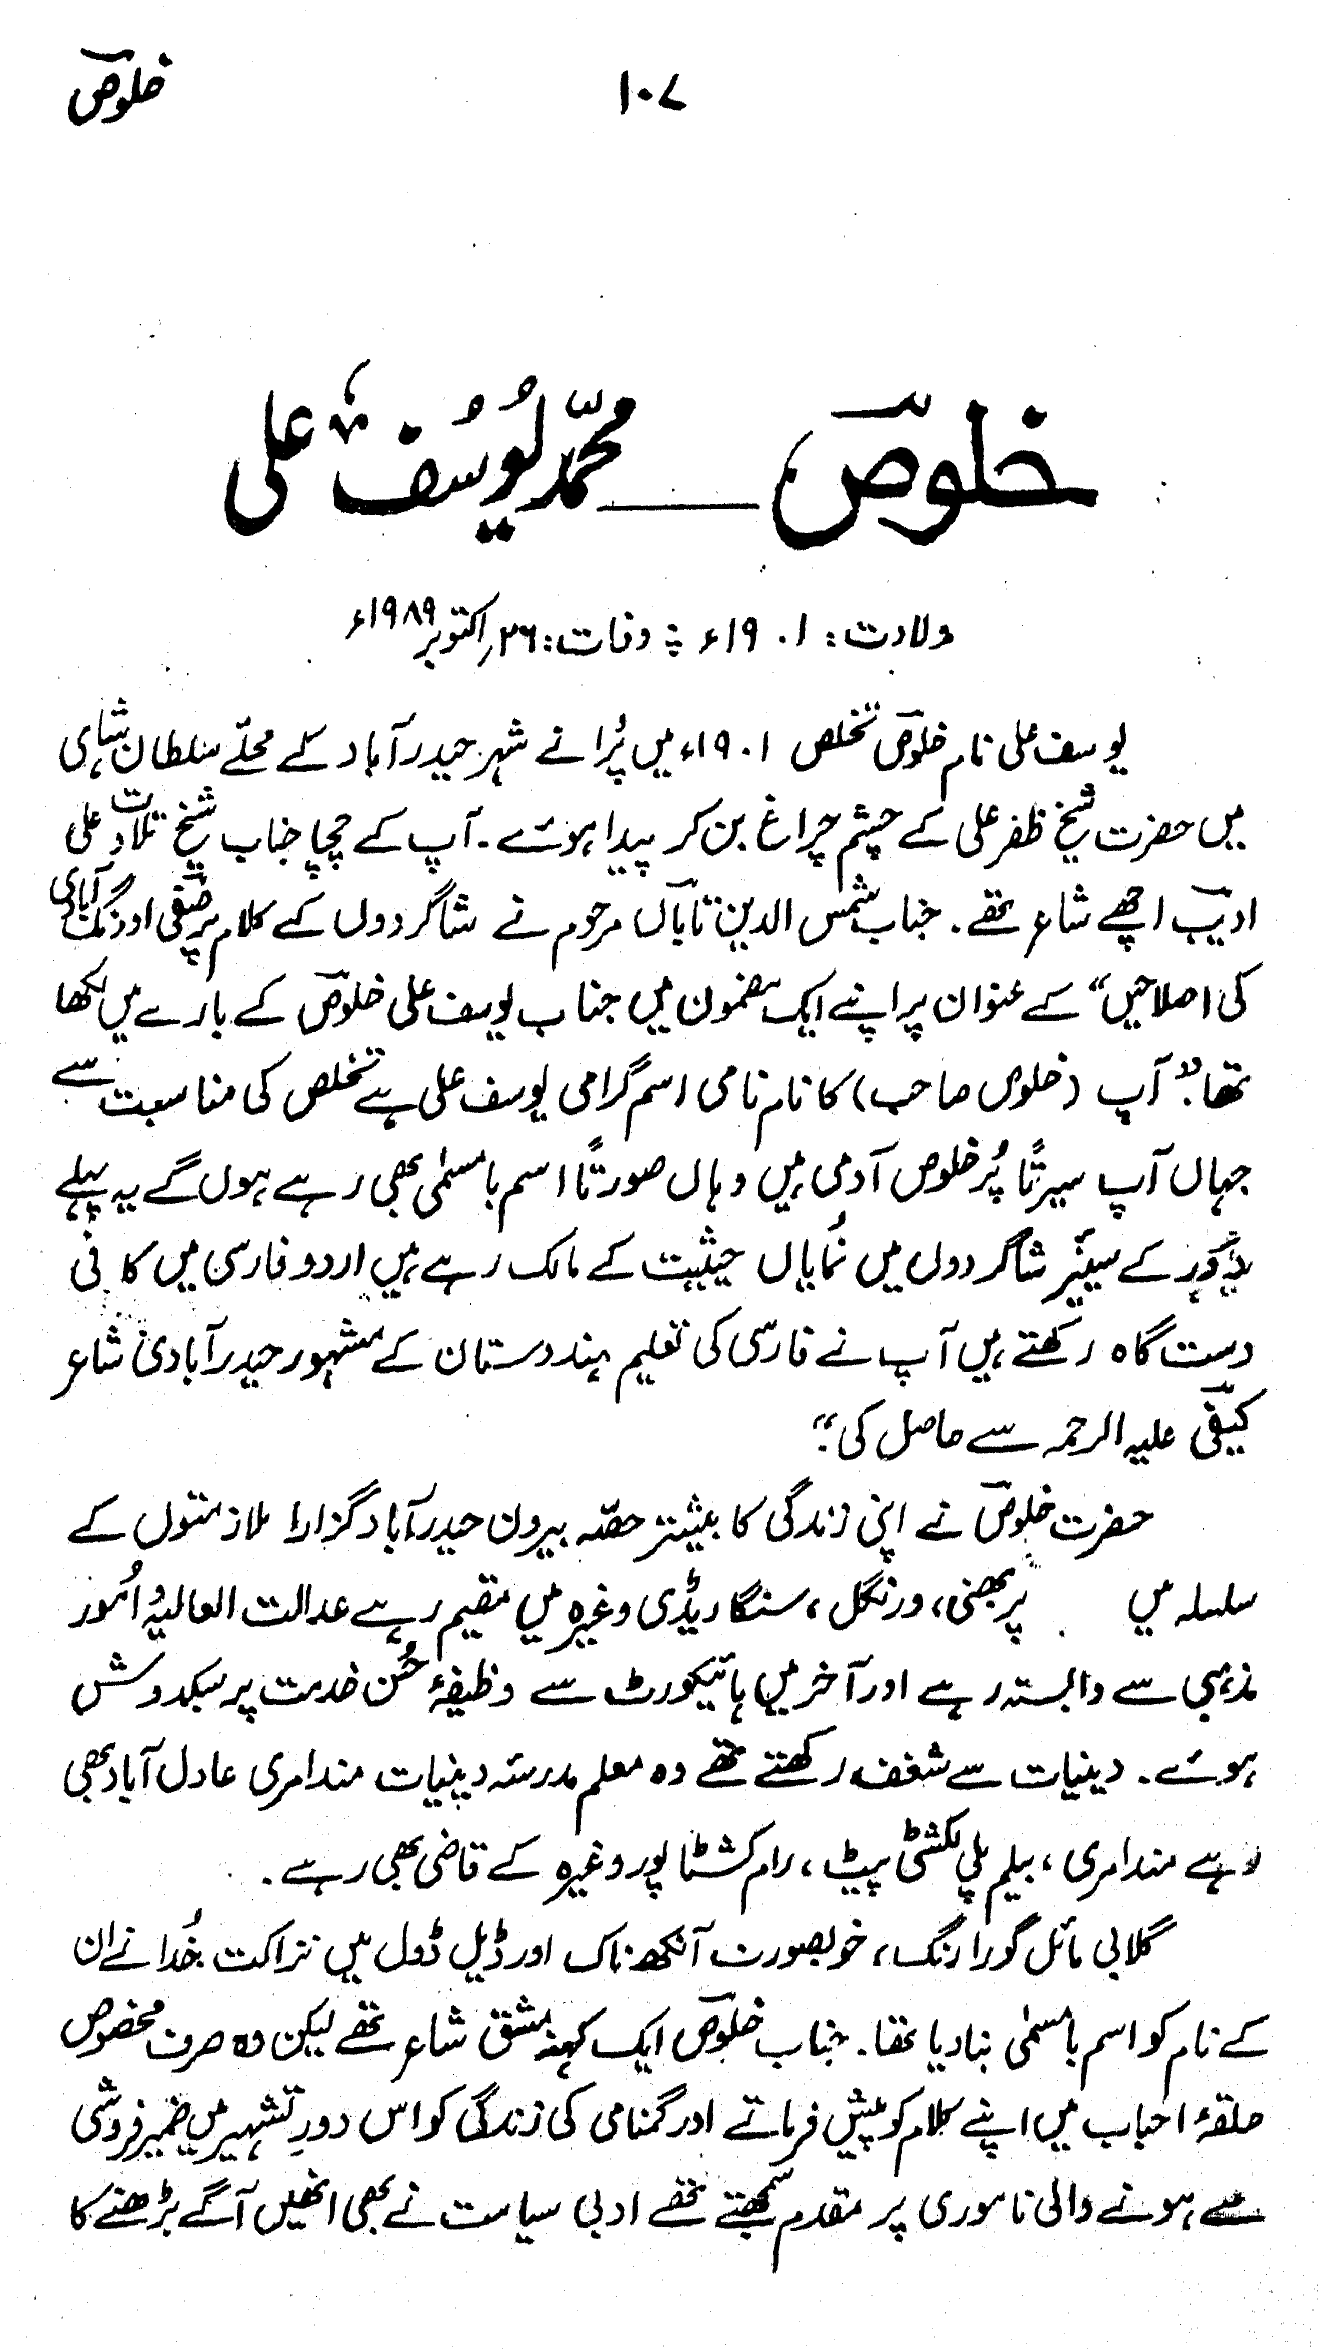 خلوصؔ
۱۰۷
خلوصؔ ــــ محمّد یوُسُف علی
ولادت: ۱۹۰۱ء ؞ وفات: ۲۶؍اکتوبر ۱۹۸۹ء
یوسف علی نام خلوصؔ تخلص ۱۹۰۱ء میں پُرانے شہر حیدرآباد کے محلّے سلطان شاہی
میں حضرت شیخ ظفر علی کے چشم چراغ بن کر پیدا ہوئے۔ آپ کے چچا جناب شیخ تلاوت علی
ادیبؔ اچھے شاعر تھے۔ جناب شمس الدین تاباںؔ مرحوم نے شاگردوں کے کلام پر صفیؔ اورنگ آبادی
کی اصلاحیں“ کے عنوان پر اپنے ایک مضمون میں جناب یوسف علی خلوصؔ کے بارے میں لکھا
تھا: ”آپ (خلوص صاحب) کا نام نامی اسم گرامی یوسف علی ہے تخلص کی مناسبت سے
جہاں آپ سیرتاً پُرخلوص آدمی ہیں وہاں صورتاً اسم بامسمّٰی بھی رہے ہوں گے یہ پہلے
دَور کے سینیَر شاگردوں میں نمُایاں حیثیت کے مالک رہے ہیں اردو فارسی میں کافی
دست گاہ رکھتے ہیں آپ نے فارسی کی تعلیم ہندوستان کے مشہور حیدرآبادی شاعر
کیفیؔ علیہ الرحمہ سے حاصل کی۔“
حضرت خلوصؔ نے اپنی زندگی کا بیشتر حصّہ بیرون حیدرآباد گزارا ملازمتوں کے
سلسلہ میں پربھنی، ورنگل، سنگاریڈی وغیرہ میں مقیم رہے عدالت العالیہ اُمور
مذہبی سے وابستہ رہے اور آخر میں ہائیکورٹ سے وظیفۂ حُسن خدمت پر سبکدوش
ہوئے۔ دینیات سے شغف رکھتے تھے وہ معلم مدرسہ دینیات مندامری عادل آباد بھی
رہے مندامری، بیلم پلی لکشٹی پیٹ، رام کشٹاپور وغیرہ کے قاضی بھی رہے۔
گلابی مائل گورا رنگ، خوبصورت آنکھ ناک اور ڈیل ڈول میں نزاکت خُدا نے ان
کے نام کو اسم بامسمّٰی بنادیا تھا۔ جناب خلوصؔ ایک کہنہ مشق شاعر تھے لیکن وہ صرف مخصوص
حلقۂ احباب میں اپنے کلام کو پیش فرماتے اور گمنامی کی زندگی کو اس دورِ تشہیر میں ضمیر فروشی
سے ہونے والی ناموری پر مقدم سمجھتے تھے ادبی سیاست نے بھی انھیں آگے بڑھنے کا